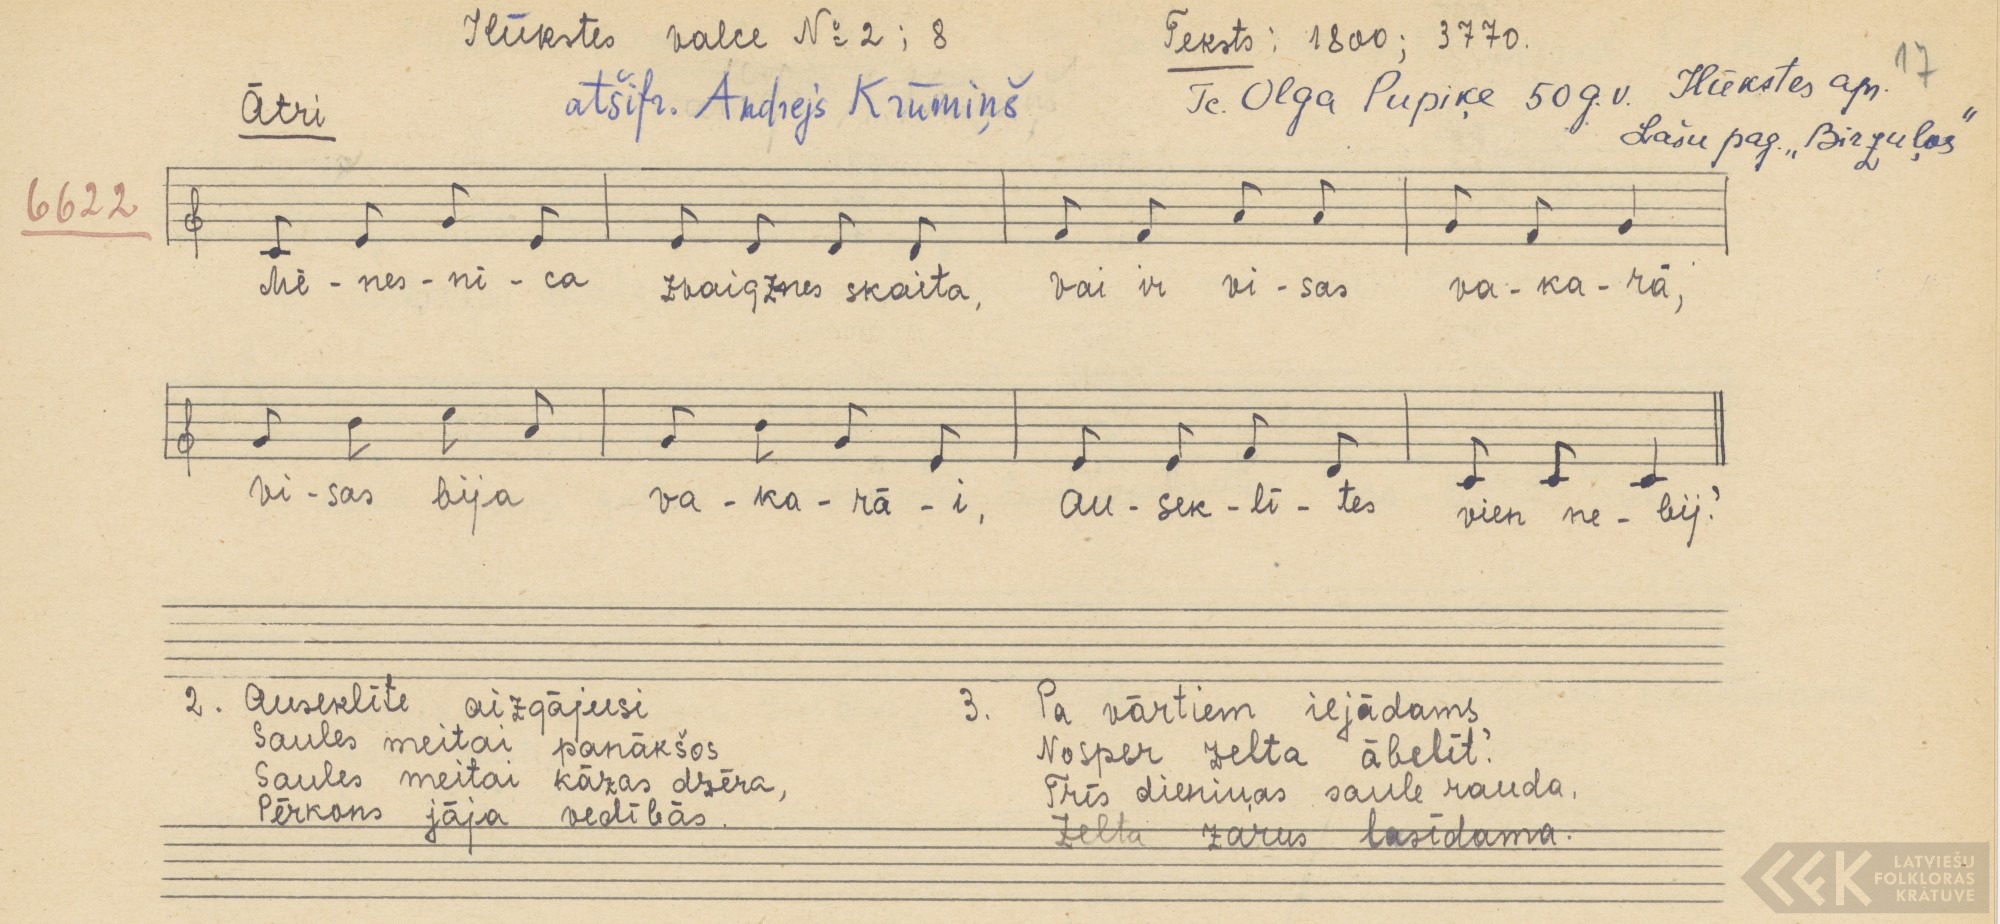 Ilūkstes valce № 2 ; 8
Teksts: 1800; 3770.
17
Ātri
atšifr. Andrejs Krūmiņš
Tc. Olga Pupiķe 50 g.v. Ilūkstes apr.
Lašu pag. „Birzuļos"
6622
Mē - nes - nī - ca zvaigznes skaita, vai ir vi - sas va - ka - rā,
vi - sas bija va - ka - rā - i, Au - sek - lī - tes vien ne - bij'
2. Auseklīte aizgājusi
Saules meitai panākšos
Saules meitai kāzas dzēra,
Pērkons jāja vedībās.
3. Pa vārtiem iejādams
Nosper zelta ābelīt'.
Trīs dieniņas saule rauda.
Zelta zarus lasīdama.
LATVIEŠU
FOLKLORAS
KRĀTUVE